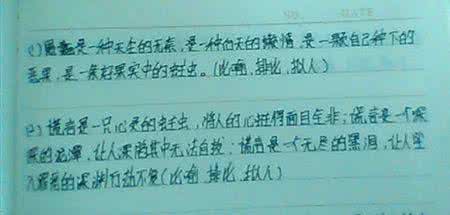 NO. DATE
(1)愚蠢是一种天生的无能,是一种的天的懒惰,是一颗自己种下的
恶果,是一条好果实中的蛀虫。(比喻,排比,拟人)
(2)谎言是一只心灵的蛀虫,将人的心蛀得面目全非;谎言是一个深
深的泥潭,让人深陷其中无法自拔;谎言是一个无尽的黑洞,让人坠
入罪恶的深渊万劫不复(比喻,排比,拟人)